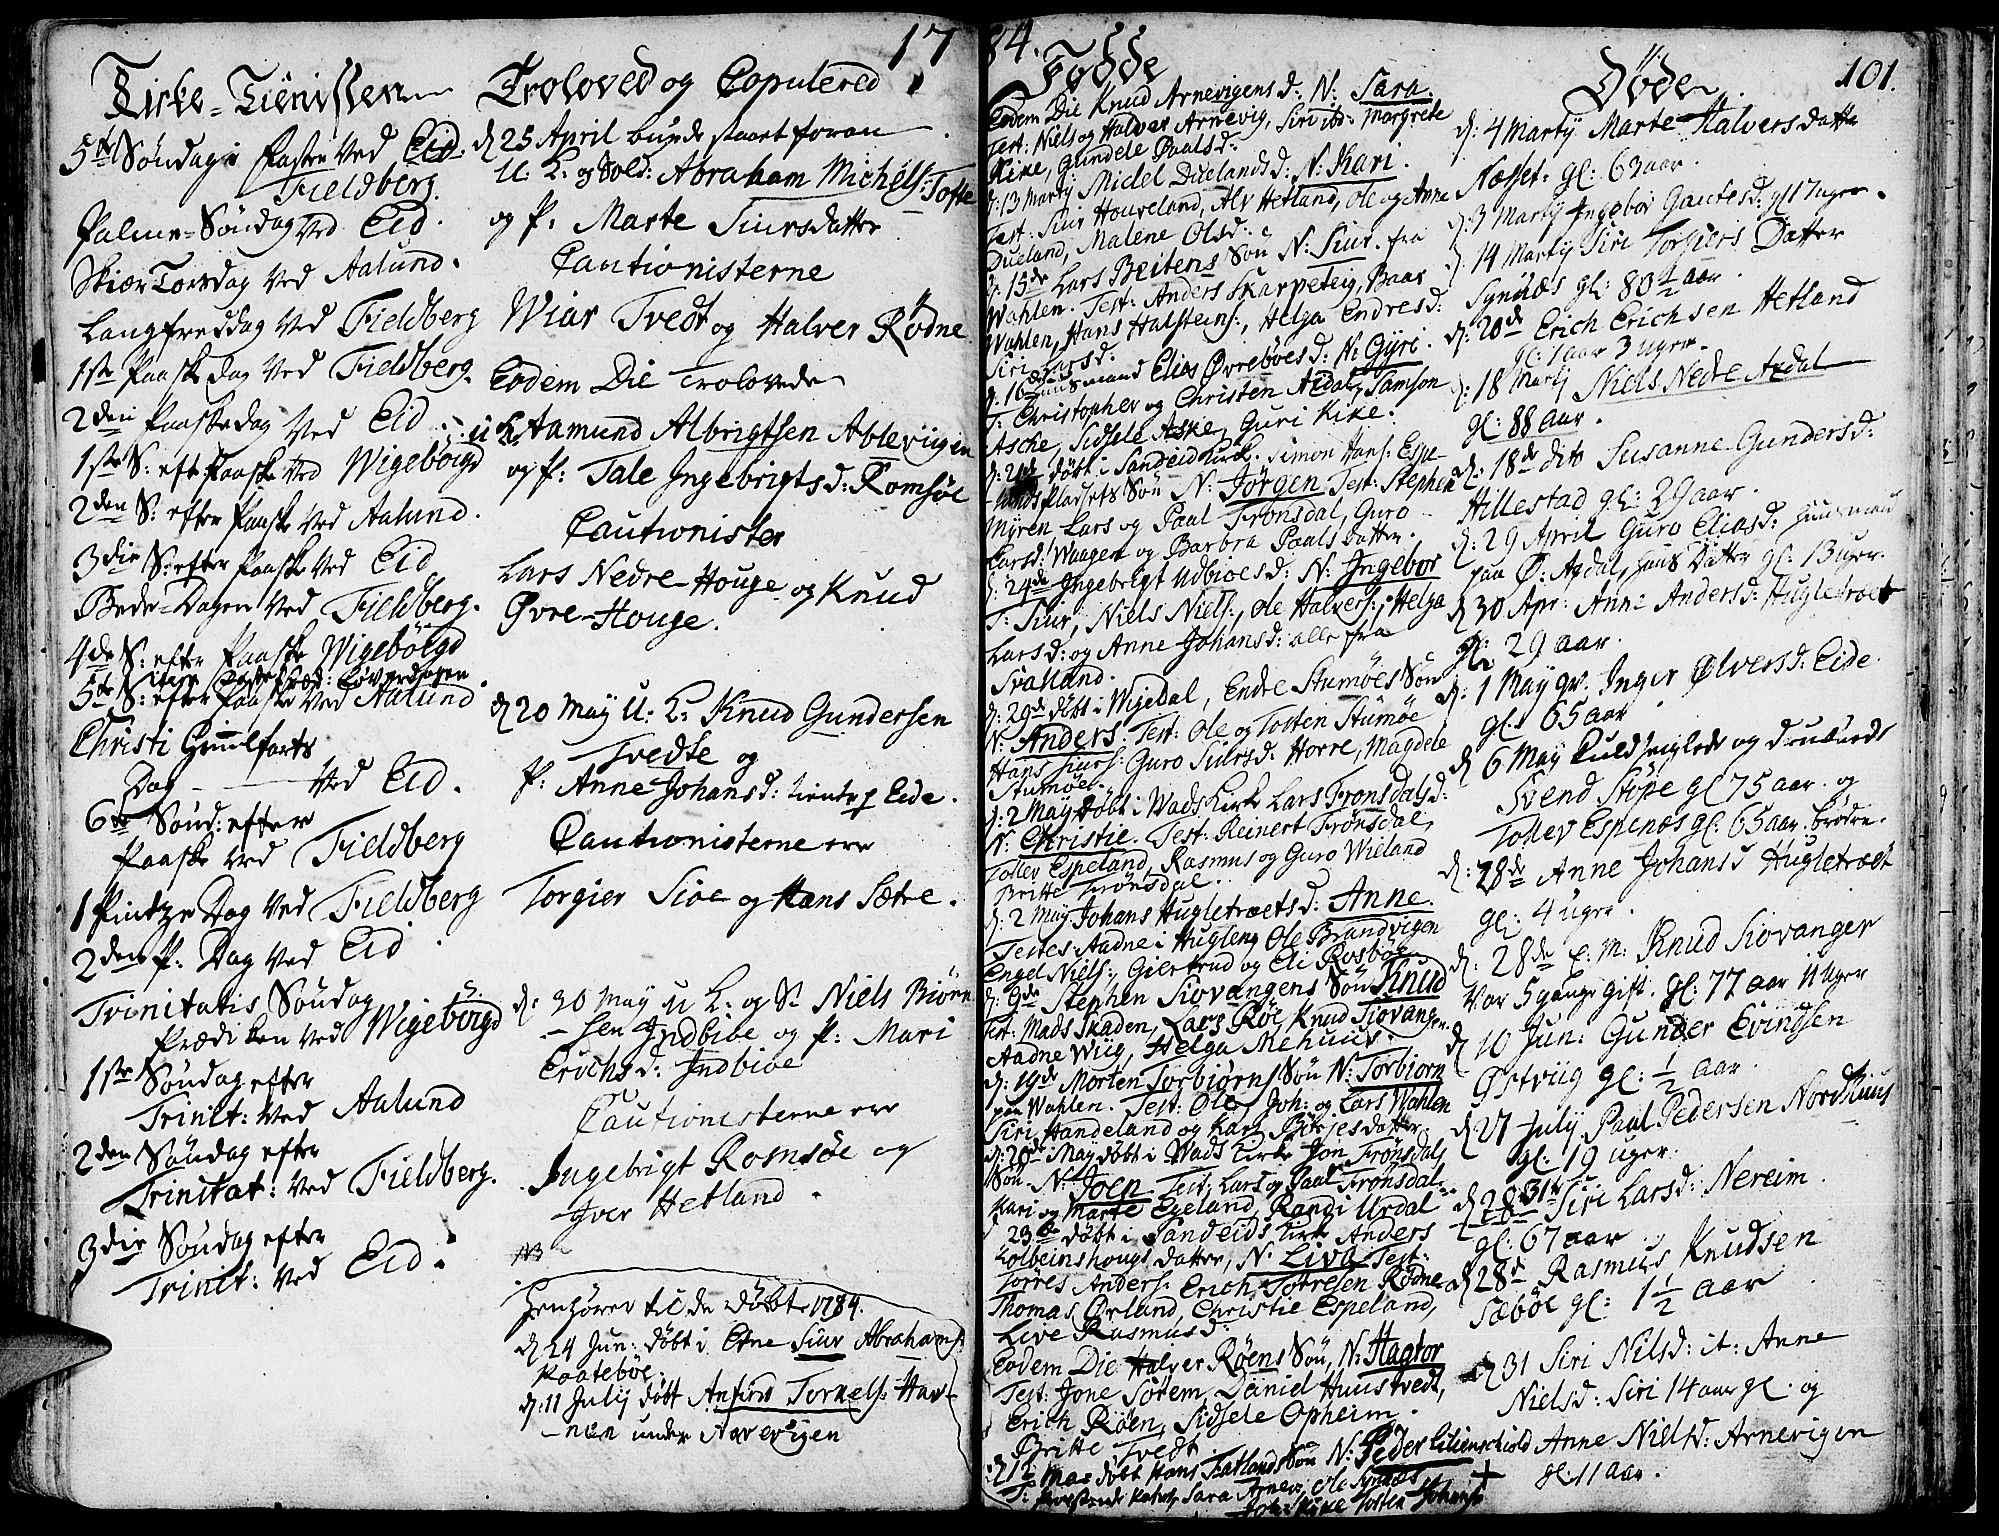 17
Kirke-Tienisten
5te Søndag i Faste ved Eid.
Fieldberg.
Palme-Søndag ved Eid.
Skiær Torsdag ved Aalund.
Langfreddag ved Fieldberg
1ste Paaske Dag ved Fieldberg.
2den Paaskedag ved Eid.
1ste S: eft Paaske ved Wigebørgd
2den S: efter Paaske ved Aalund.
3die S: efter Paaske ved Eid
Bede-Dagen ved Fieldberg.
4de S: efter Paaske Wigebøigd
5te S: efter Paaske ved Aalund
Christi Himelfarts
Dag ved Eid.
6te Sønd: efter
Paaske ved Fieldberg
1 Pintze Dag ved Fieldberg
2den P: Dag ved Eid.
Trinitatis Søndag
Prædiken ved Wigebørgd
1ste Søndag efter
Trinit: ved Aalund
2den Søndag efter
Trinitat: ved Fieldberg.
3die Søndag efter
Trinit: ved Eid.
Troloved og Copulered
d 25 April foran
U: K: og Sold: Abraham Michels: Tofte
og P: Marte Siursdatter
Cautionisterne
Wiar Tvedt og Halver Rødne
Eodem Die Trolovede
U K Aamund Albrigtsen Ablevigen
og P: Tale Ingebrigtsd: Romsøe
Cautionister
Lars Nedre-Houge og Knud
Øvre-Houge.
d 20 May U: K: Knud Gundersen
Tvedte og
P: Anne Johansd: tiente p Eide.
Cautionisterne ere
Torgier Sioe og Hans Sætre.
d: 30 May U K: og S: Niels Biørn
-sen Indbioe og P: Mari
Erichsd: Indbioe
Cautionisterne ere
Ingebrigt Romsøe og
Iver Hetland.
NB
Henhører til de Døbte 1784.
d 24 Jun: døbt i Etne Siur Abrahams:
d: 11 July døbt Tornels: Hav-
-nen under Aarevigen
84.
Fødde
Eodem Die Knud Arnevigens d: N: Sara.
Test: Niels og Halver Arnevig, Siri ibd: Margrete
Kike, Gundele Paalsd:
d: 13 Marty Midel Duelands d: N: Kari.
Test: Siur Houveland, Alv Hetland, Ole og Anne
Dueland, Malene Olsd:
d: 15de Lars Beitens Søn N: Siur. fra
Wahlen. Test: Anders Skarpeteig, Baar
Wahlen, Hans Halsteins:, Helga Endresd:
Siri Larsd:
d: 16 Huusmand Elias Øvrebøes d: N: Gyri.
T: Christopher og Christen Axdal, Samson
Asche, Sidsele Aske, Guri Kike.
d: 21de døbt i Sandeid Kirk: Simon Hans: Espe-
Pladsets Søn N: Jørgen Test: Stephen
Myren Lars og Paal Frønsdal, Guro
Larsd: Waagen og Barbra Paals Datter.
d: 24de Ingebrigt Udbioes d: N: Ingebor
T: Siur, Niels Niels:, Ole Halvers:, Helga
Larsd: og Anne Johansd: alle fra
Svalland.
d: 29de døbt i Wigedal, Endre Stumøes Søn
N: Anders. Test: Ole og Tosten Stumøe
Hans Siurs: Guro Siursd: Horre, Magdele
Stumøe.
d: 2 May døbt i Wads Kirke Lars Frønsdals d:
N: Christie. Test: Reinert Frønsdal,
Tollev Espeland, Rasmus og Guro Wieland
Britte Frønsdal.
d: 2 May Johans Hugletræets d: Anne.
Testes Aadne i Huglen, Ole Brandvigen
Engel Niels:, Giertrud og Eli Rosbøe
d: 9de Stephen Siovangens Søn Knud
Test: Mads Skaden, Lars Røe, Knud Siovangen.
Aadne Wiig, Helga Mehuus.
d: 19de Morten Torbiørns Søn N: Torbiorn
paa Wahlen. Test: Ole, Joh: og Lars Wahlen
Siri Handeland og Kari datter.
d: 20de May døbt i Wads Kirke Jon Frønsdals
Søn N: Joen. Test: Lars og Paal Frønsdal
Kari og Marte Egeland, Randi Urdal
23de døbt i Sandeids Kirke Anders
Kolbeinshougs Datter, N: Liva Test:
Torres Anders: Erich Torresen Rødne
Thomas Ørland, Christie Espeland,
Live Rasmusd:
Eodem Die Halver Røens Søn, N: Hagtor
Test: Jone Sørem Daniel Huustvedt,
Erich Røen, Sidsele Opheim.
Britte Tvedt
døbt Hans Søn N: Peder Lilienschiold
101.
Døde
d: 4 Marty Marte Halvers datter
Næsset. gl: 63 aar.
d: 3 Marty Ingebor Gautes d: gl 7 uger.
d: 14 Marty Siri Torgiers Datter
Synnæs gl: 80 ½ aar.
d: 20de Erich Erichsen Hetland
gl: 1 aar 3 uger.
d: 18 Marty Niels Nedre Axdal
gl: 88 aar.
d: 18de dito Susanne Gundersd:
Hillestad gl: 29 aar.
d: 29 April Guro Eliasd: Huusmand
paa Ø: Axdal, hans Datter gl: 13 uger.
d 30 Apr: Anne Andersd: Hugletræet
gl: 29 aar.
d: 1 May qv. Inger Ølversd: Eide.
gl: 65 aar
d 6 May Kuldseiglede og druknede
Svend Støpe gl 75 aar. og
Tollev Espenæs gl: 65 aar. brødre.
d: 28de Anne Johansd Hugletræet
gl: 4 uger.
d: 28de e: m: Knud Siovangen
Var 5 gange gift. gl: 77 aar 11 Uger
d 10 Jun: Gunder Evindsen
Østviig gl: ½ aar.
d 27 July Paal Pedersen Nordhuus
gl: 19 uger.
d 31te Siri Larsd: Nereim.
gl: 67 aar.
d 28de Rasmus Knudsen
Sæbøe gl: 1 ½ aar
d 31 Siri Nilsd: it: Anne
Nielsd: Siri 14 aar gl. og
Anne Nielsd: Arnevigen
gl: 11 aar.